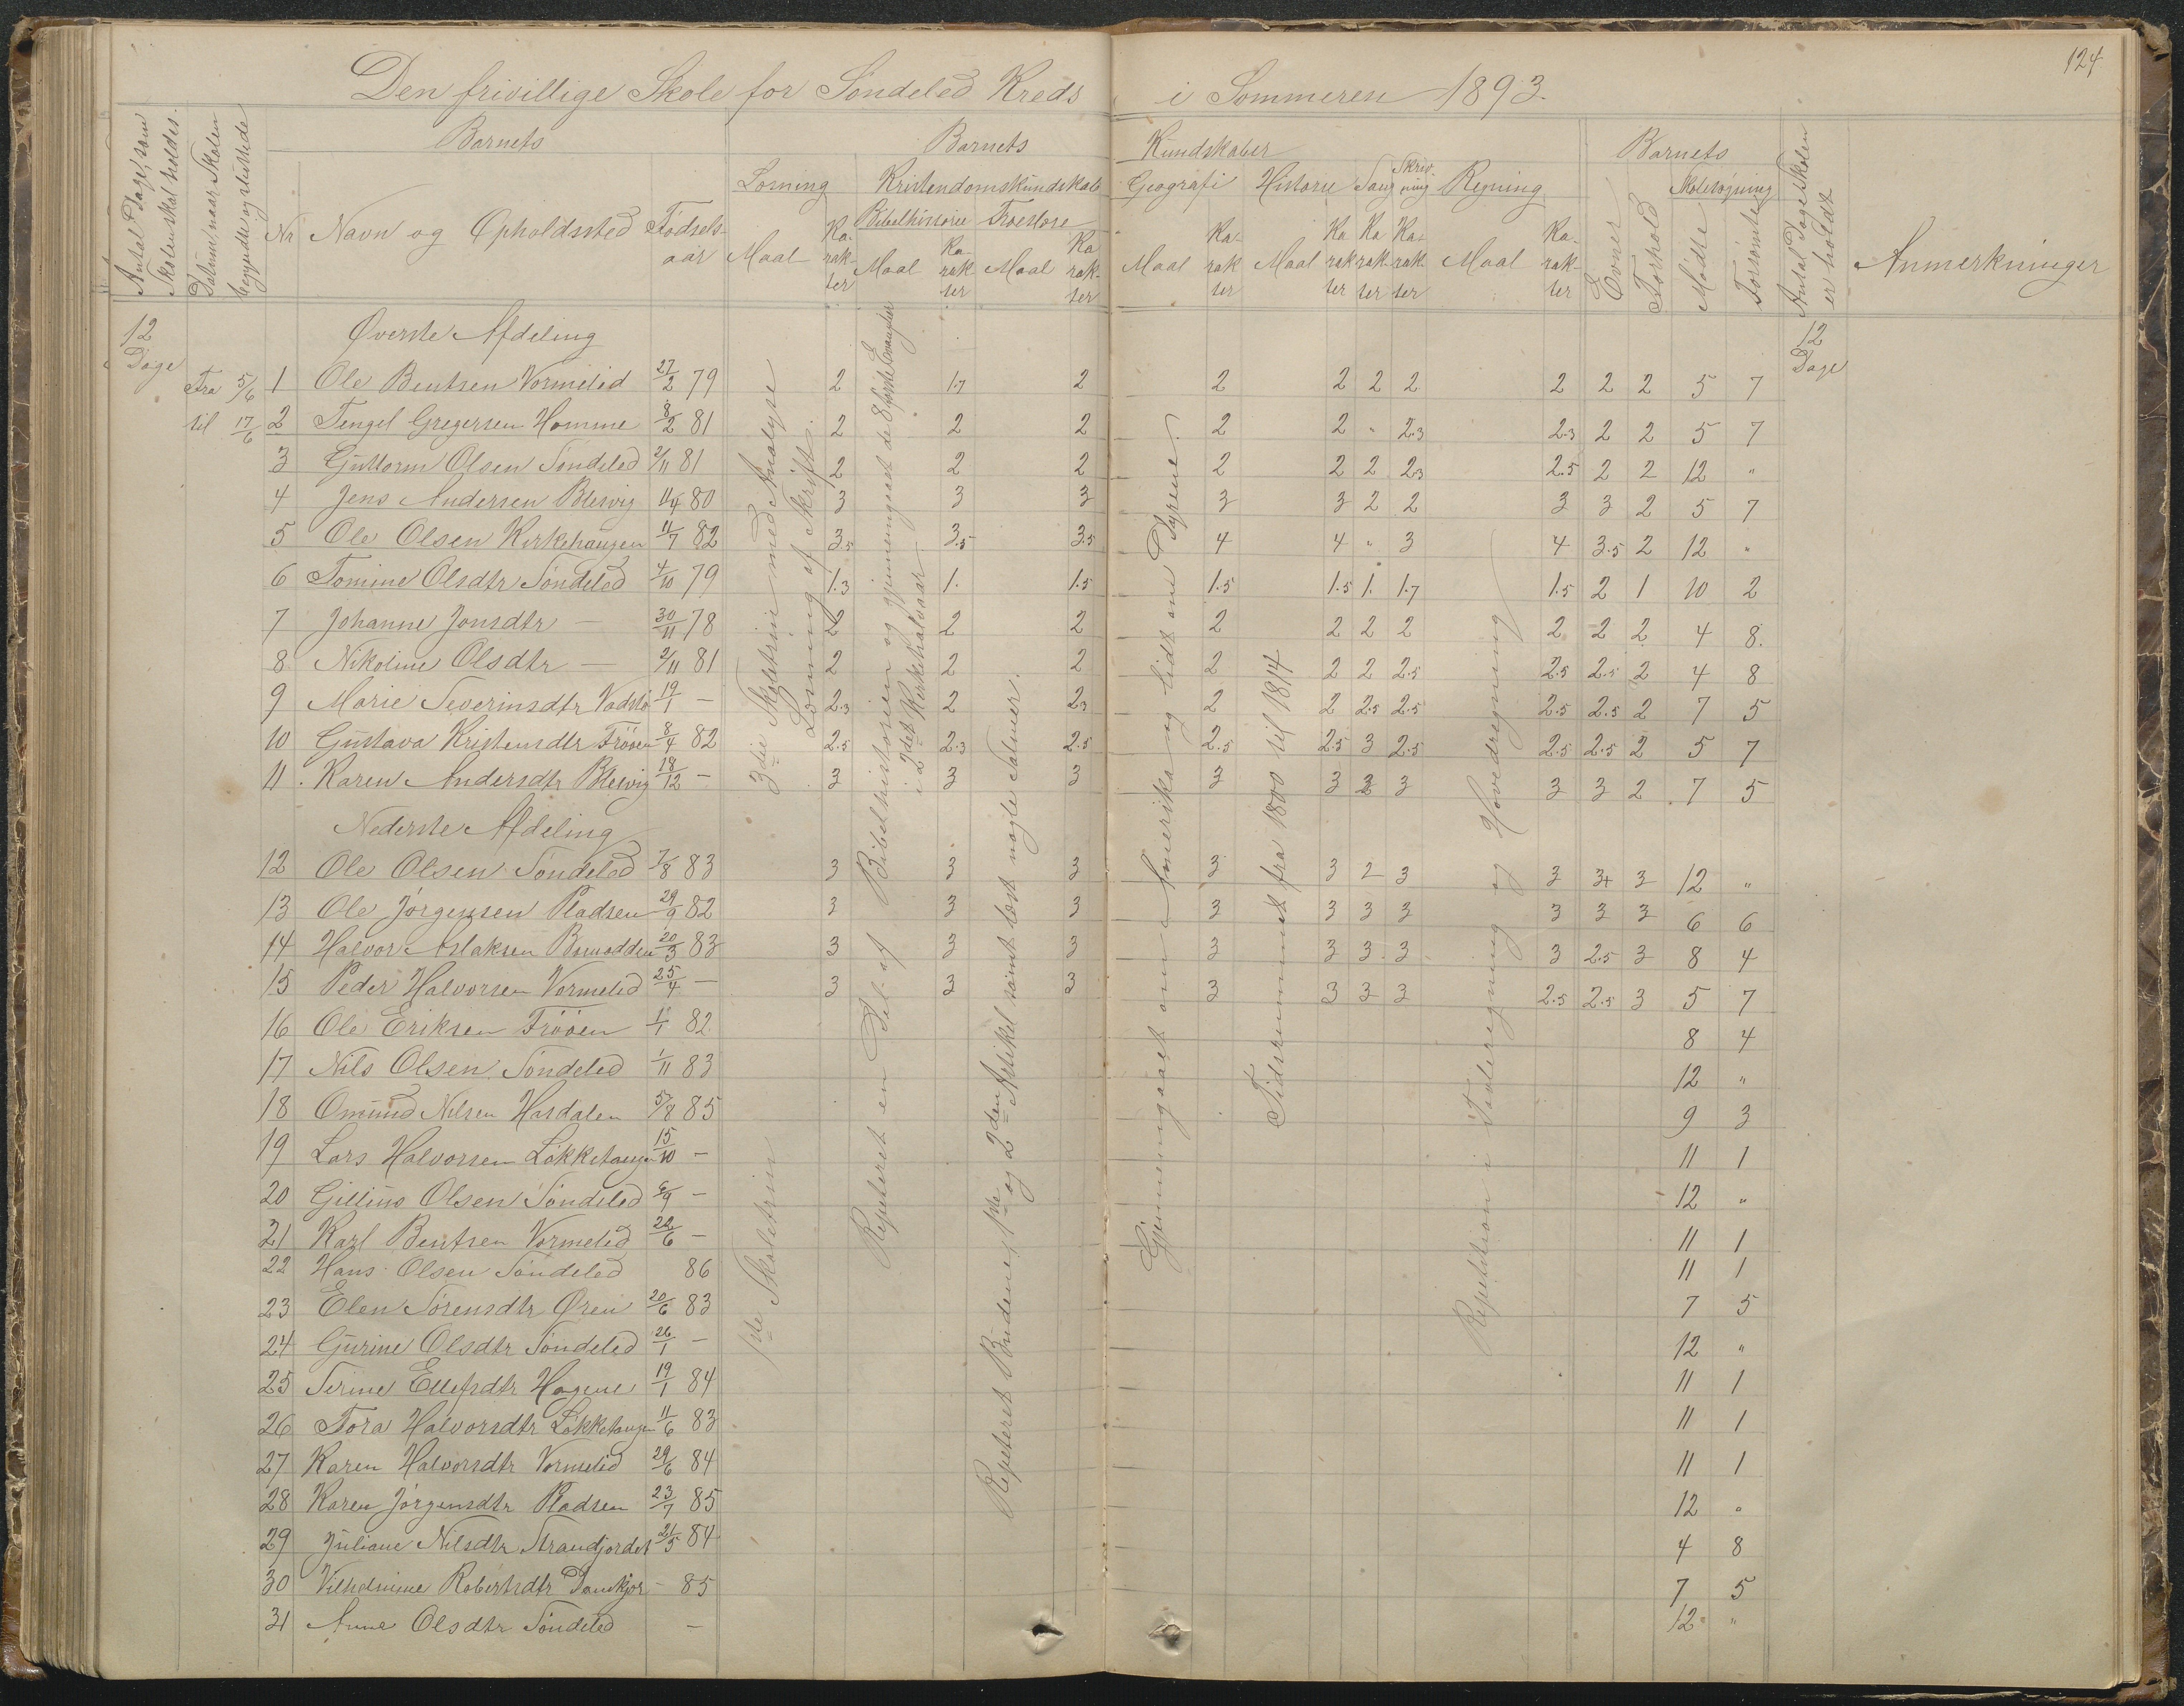 124
Den frivillige Skole for Søndeled Kreds i Sommeren 1893.
Antal Dage, som Skolen skal holdes.
Datum, naar Skolen begyndte og sluttede
Barnets Barnets Kundskaber Barnets
Nr Navn og Opholdssted Fødselsaar
Læsning Kristendomskundskab Geografi Historie Sang Skrivning Regning Skolesøgning
Bibelhistorie Troeslære
Maal Karakter Maal Karakter Maal Karakter Maal Karakter Maal Karakter Karakter Karakter Maal Karakter
Evner Forhold Mødte Forsømte
Antal Dage Skolen er holdt
Anmerkninger
12 Dage
Fra 5/6
til 17/6
12 Dage
Øverste Afdeling
1 Ole Bentsen Vormelid 27/2 79 2 1.7 2 2 2 2 2 2 2 2 5 7
2 Tengel Gregersen Homme 8/2 81 2 2 2 2 2 " 2.3 2.3 2 2 5 7
3 Guttorm Olsen Søndeled 2/11 81 2 2 2 2 2 2 2.3 2.5 2 2 12 "
4 Jens Andersen Blesvig 80 3 3 3 3 3 2 2 3 3 2 5 7
5 Ole Olsen Kirkehaugen 11/7 82 3.5 3.5 3.5 4 4 " 3 4 3.5 2 12 "
6 Tomine Olsdtr Søndeled 4/10 79 1.3 1. 1.5 1.5 1.5 1. 1.7 1.5 2 1 10 2
7 Johanne Jonsdtr — 30/11 78 2 2 2 2 2 2 2 2 2 2 4 8.
8 Nikoline Olsdtr — 2/11 81 2 2 2 2 2 2 2.5 2.5 2.5 2 4 8
9 Marie Severinsdtr 19/1 — 2.3 2 2.3 2 2 2.5 2.5 2.5 2.5 2 7 5
10 Gustava Kristensdtr Frøen 8/4 82 2.5 2.3 2.5 2.5 2.5 3 2.5 2.5 2.5 2 5 7
11. Karen Andersdtr Blesvig 18/12 — 3 3 3 3 3 2 3 3 3 2 7 5
Nederste Afdeling
12 Ole Olsen Søndeled 7/8 83 3 3 3 3 3 2 3 3 3+ 3 12 "
13 Ole Jørgensen Pladsen 29/9 82 3 3 3 3 3 3 3 3 3 3 6 6
14 Halvor Aslaksen 20/3 83 3 3 3 3 3 3 3 3 2.5 3 8 4
15 Peder Halvorsen Vormelid 25/4 — 3 3 3 3 3 3 3 2.5 2.5 3 5 7
16 Ole Eriksen Frøen 82 8 4
17 Nils Olsen Søndeled 1/11 83 12 "
18 Omund Nilsen Hasdalen 5/8 85 9 3
19 Lars Halvorsen Løkketangen 15/10 — 11 1
20 Gillius Olsen Søndeled — 12 "
21 Karl Bentsen Vormelid 22/6 — 11 1
22 Hans Olsen Søndeled 86 11 1
23 Elen Sørensdtr Øren 20/6 83 7 5
24 Gurine Olsdtr Søndeled 26/1 — 12 "
25 Serine Ellefsdtr Hagene 19/1 84 11 1
26 Tora Halvorsdtr Løkketangen 11/6 83 11 1
27 Karen Halvorsdtr Vormelid 29/6 84 11 1
28 Karen Jørgensdtr Pladsen 23/7 85 12 "
29 Juliane Nilsdtr Strandjordet 21/5 84 4 8
30 Vilhelmine Robertsdtr — 85 7 5
31 Anne Olsdtr Søndeled — 12 "
3die Skoletrin med Analyse
Læsning af Skrift.
1ste Skoletrin
Repeteret en Del af Bibelhistorien og gjennemgaaet de 8 første Evangelier
i 2det Kirkehalvaar
Repeteret Budene, 1ste og 2den Artikel samt læst nogle Salmer.
Gjennemgaaet om Amerika og lidt om Dyrene.
Tidsrummet fra 1800 til 1814
Repetition i Tavleregning og Hovedregning